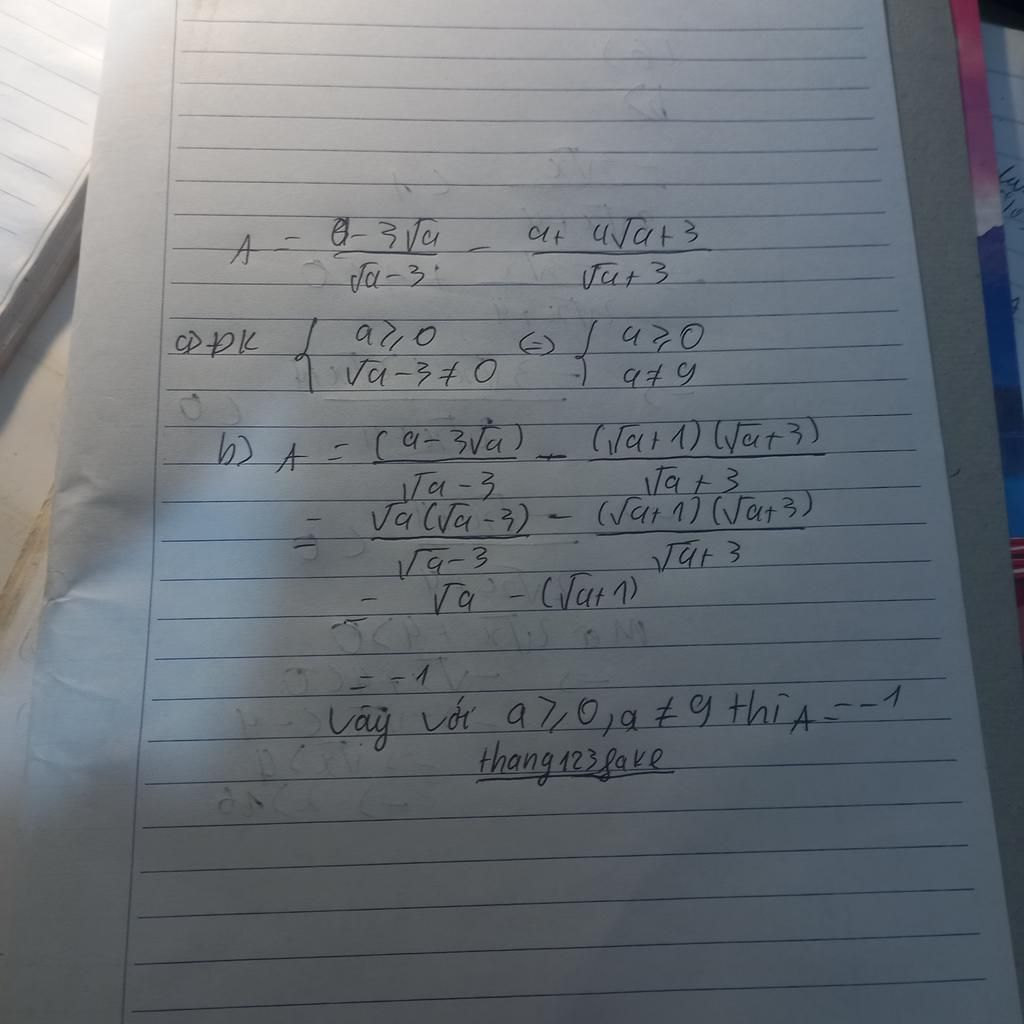 A = a - 3√a / √a - 3 - a + 4√a + 3 / √a + 3
a) ĐK { a ≥ 0 ; √a - 3 ≠ 0 <=> { a ≥ 0 ; a ≠ 9
b) A = (a - 3√a) / √a - 3 - (√a + 1)(√a + 3) / √a + 3
= √a(√a - 3) / √a - 3 - (√a + 1)(√a + 3) / √a + 3
= √a - (√a + 1)
= -1
Vậy với a ≥ 0, a ≠ 9 thì A = -1
thang123fake